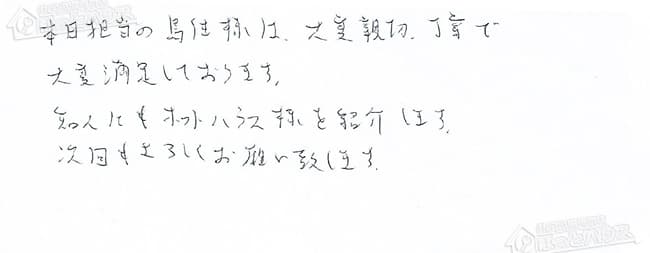 本日担当の馬住様は、大変親切、丁寧で
大変満足しております。
知人にもホットハウス様を紹介します。
次回もよろしくお願い致します。
ほっとハウス